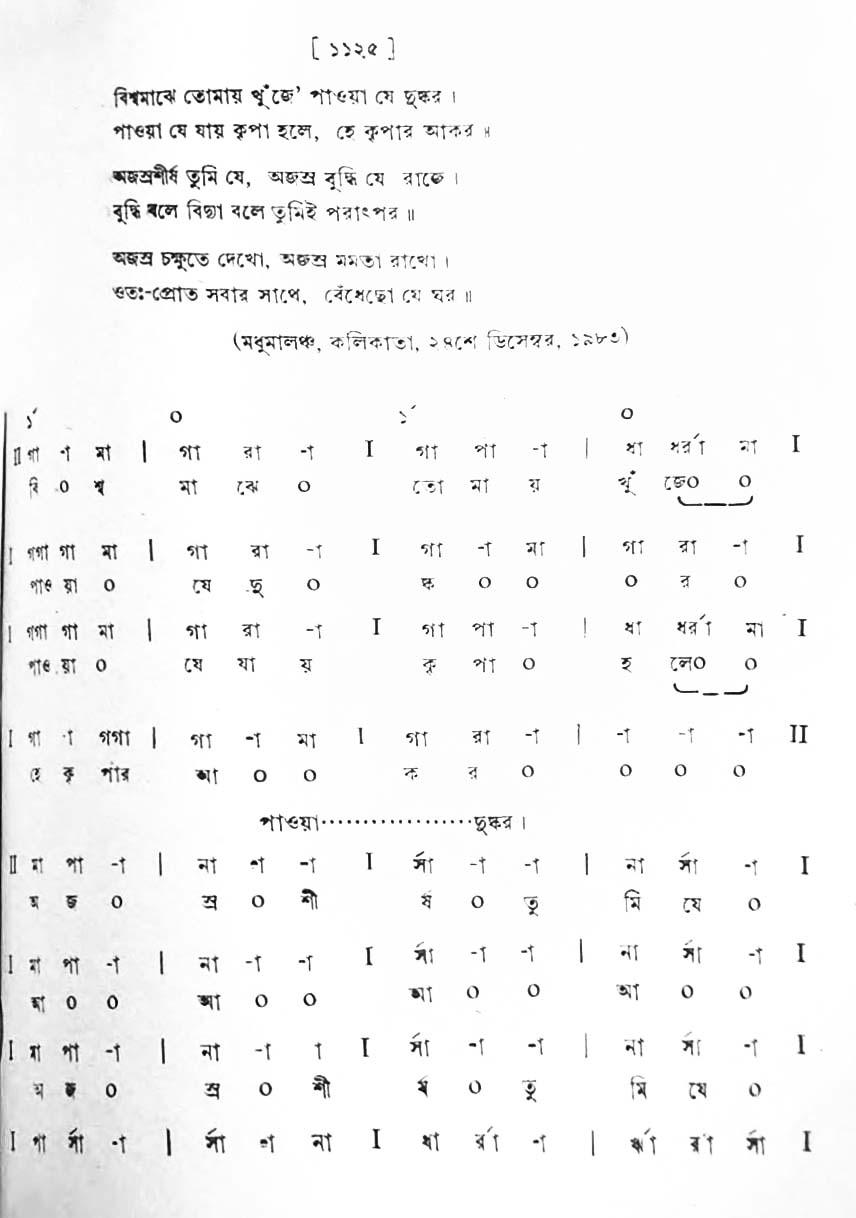 [ ১১২৫ ]
বিশ্বমাঝে তোমায় খুঁজে’ পাওয়া যে দুষ্কর ।
পাওয়া যে যায় কৃপা হলে, হে কৃপার আকর ॥
অজস্রশীর্ষ তুমি যে, অজস্র বুদ্ধি যে রাজে ।
বুদ্ধি বলে বিদ্যা বলে তুমিই পরাৎপর ॥
অজস্র চক্ষুতে দেখো, অজস্র মমতা রাখো ।
ওতঃ-প্রোত সবার সাথে, বেঁধেছো যে ঘর ॥
(মধুমালঞ্চ, কলিকাতা, ২৪শে ডিসেম্বর, ১৯৮৩)
১´ ০ ১´ ০
II গা -া মা | গা রা -া I গা পা -া | ধা ধর্রা মা I
বি ০ শ্ব মা ঝে ০ তো মা য় খুঁ জে০ ০
I গগা গা মা | গা রা -া I গা -া মা | গা রা -া I
পাও য়া ০ যে দু ০ ষ্ক ০ ০ ০ র ০
I গগা গা মা | গা রা -া I গা পা -া | ধা ধর্রা মা I
পাও য়া ০ যে যা য় কৃ পা ০ হ লে০ ০
I গা -া গগা | গা -া মা I গা রা -া | -া -া -া II
হে কৃ পার আ ০ ০ ক র ০ ০ ০ ০
পাওয়া··················দুষ্কর ।
II মা পা -া | না -া -া I র্সা -া -া | না র্সা -া I
অ জ ০ স্র ০ শী র্ষ ০ তু মি যে ০
I মা পা -া | না -া -া I র্সা -া -া | না র্সা -া I
আ ০ ০ আ ০ ০ আ ০ ০ আ ০ ০
I মা পা -া | না -া া I র্সা -া -া | না র্সা -া I
অ জ ০ স্র ০ শী র্ষ ০ তু মি যে ০
I পা র্সা -া | র্সা -া না I ধা র্রা -া | র্রা র্সা I